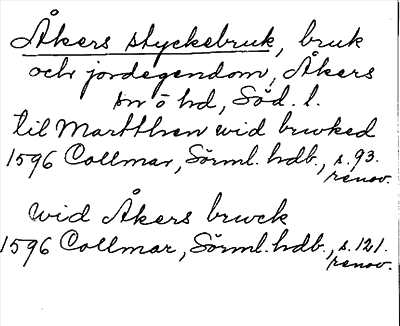 Åkers styckebruk, bruk
och jordegendom, Åkers
sn o hd, Söd. l.
til Martthen wid brwked
1596 Collmar, Sörml. hdb., s. 93.
renov.
wid Åkers brwck
1596 Collmar, Sörml. hdb., s. 121.
renov.